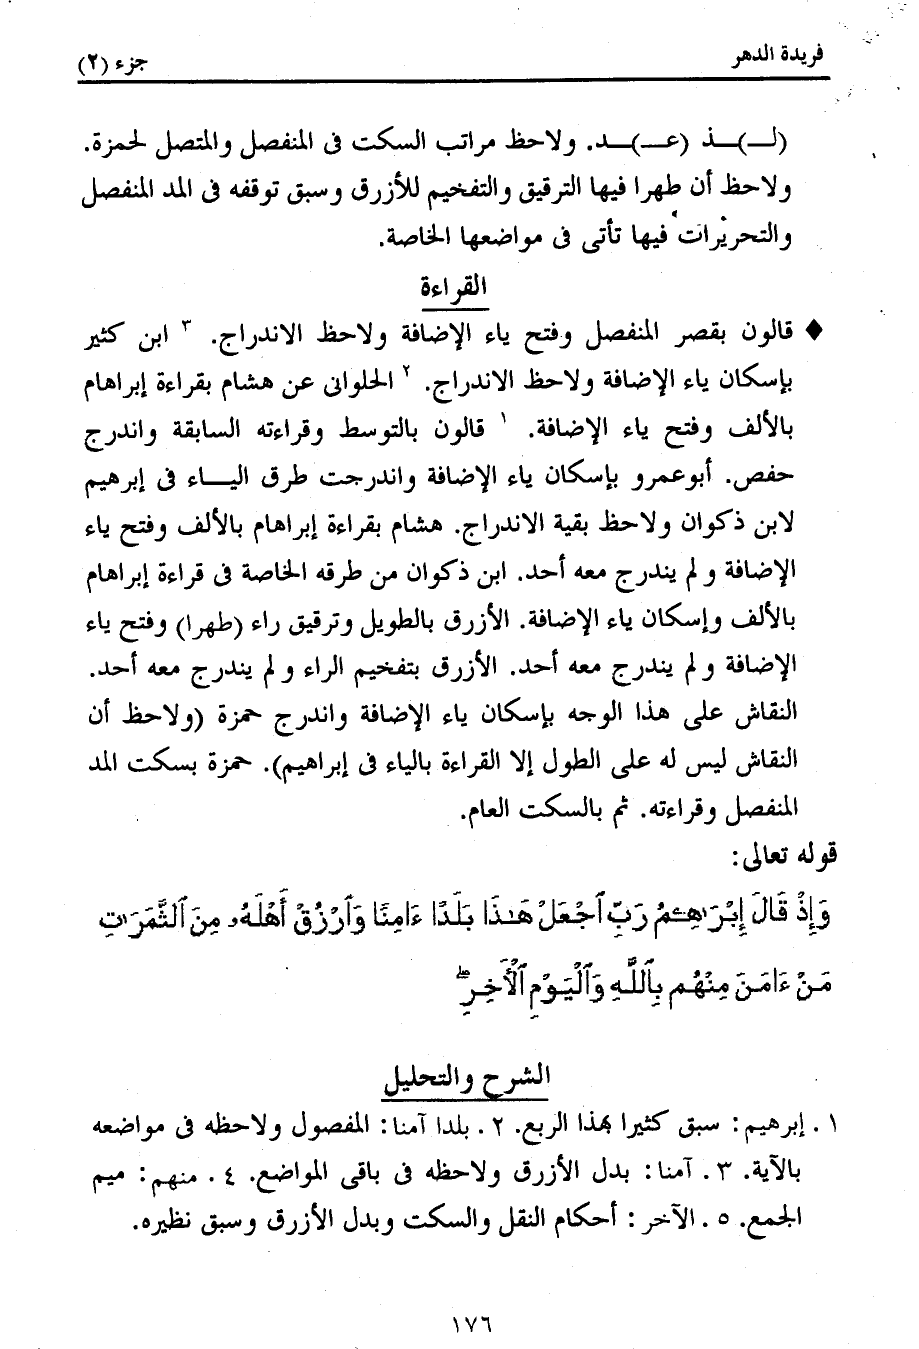 فريدة الدهر
جزء (٢)
(لـ)ـذ (عـ)ـد. ولاحظ مراتب السكت فى المنفصل والمتصل لحمزة.
ولاحظ أن طهرا فيها الترقيق والتفخيم للأزرق وسبق توقفه فى المد المنفصل
والتحريرات فيها تأتى فى مواضعها الخاصة.
القراءة
♦ قالون بقصر المنفصل وفتح ياء الإضافة ولاحظ الاندراج. ٣ ابن كثير
بإسكان ياء الإضافة ولاحظ الاندراج. ٢ الحلوانى عن هشام بقراءة إبراهام
بالألف وفتح ياء الإضافة. ١ قالون بالتوسط وقراءته السابقة واندرج
حفص. أبوعمرو بإسكان ياء الإضافة واندرجت طرق اليـــاء فى إبرهيم
لابن ذكوان ولاحظ بقية الاندراج. هشام بقراءة إبراهام بالألف وفتح ياء
الإضافة ولم يندرج معه أحد. ابن ذكوان من طرقه الخاصة فى قراءة إبراهام
بالألف وإسكان ياء الإضافة. الأزرق بالطويل وترقيق راء (طهرا) وفتح ياء
الإضافة ولم يندرج معه أحد. الأزرق بتفخيم الراء ولم يندرج معه أحد.
النقاش على هذا الوجه بإسكان ياء الإضافة واندرج حمزة (ولاحظ أن
النقاش ليس له على الطول إلا القراءة بالياء فى إبراهيم). حمزة بسكت المد
المنفصل وقراءته. ثم بالسكت العام.
قوله تعالى:
وَإِذْ قَالَ إِبْرَٰهِـۧمُ رَبِّ ٱجْعَلْ هَٰذَا بَلَدًا ءَامِنًا وَٱرْزُقْ أَهْلَهُۥ مِنَ ٱلثَّمَرَٰتِ
مَنْ ءَامَنَ مِنْهُم بِٱللَّهِ وَٱلْيَوْمِ ٱلْأَخِرِ ۖ
الشرح والتحليل
١. إبرهيم: سبق كثيرا بهذا الربع. ٢. بلدا آمنا: المفصول ولاحظه فى مواضعه
بالآية. ٣. آمنا: بدل الأزرق ولاحظه فى باقى المواضع. ٤. منهم: ميم
الجمع. ٥. الآخر: أحكام النقل والسكت وبدل الأزرق وسبق نظيره.
١٧٦